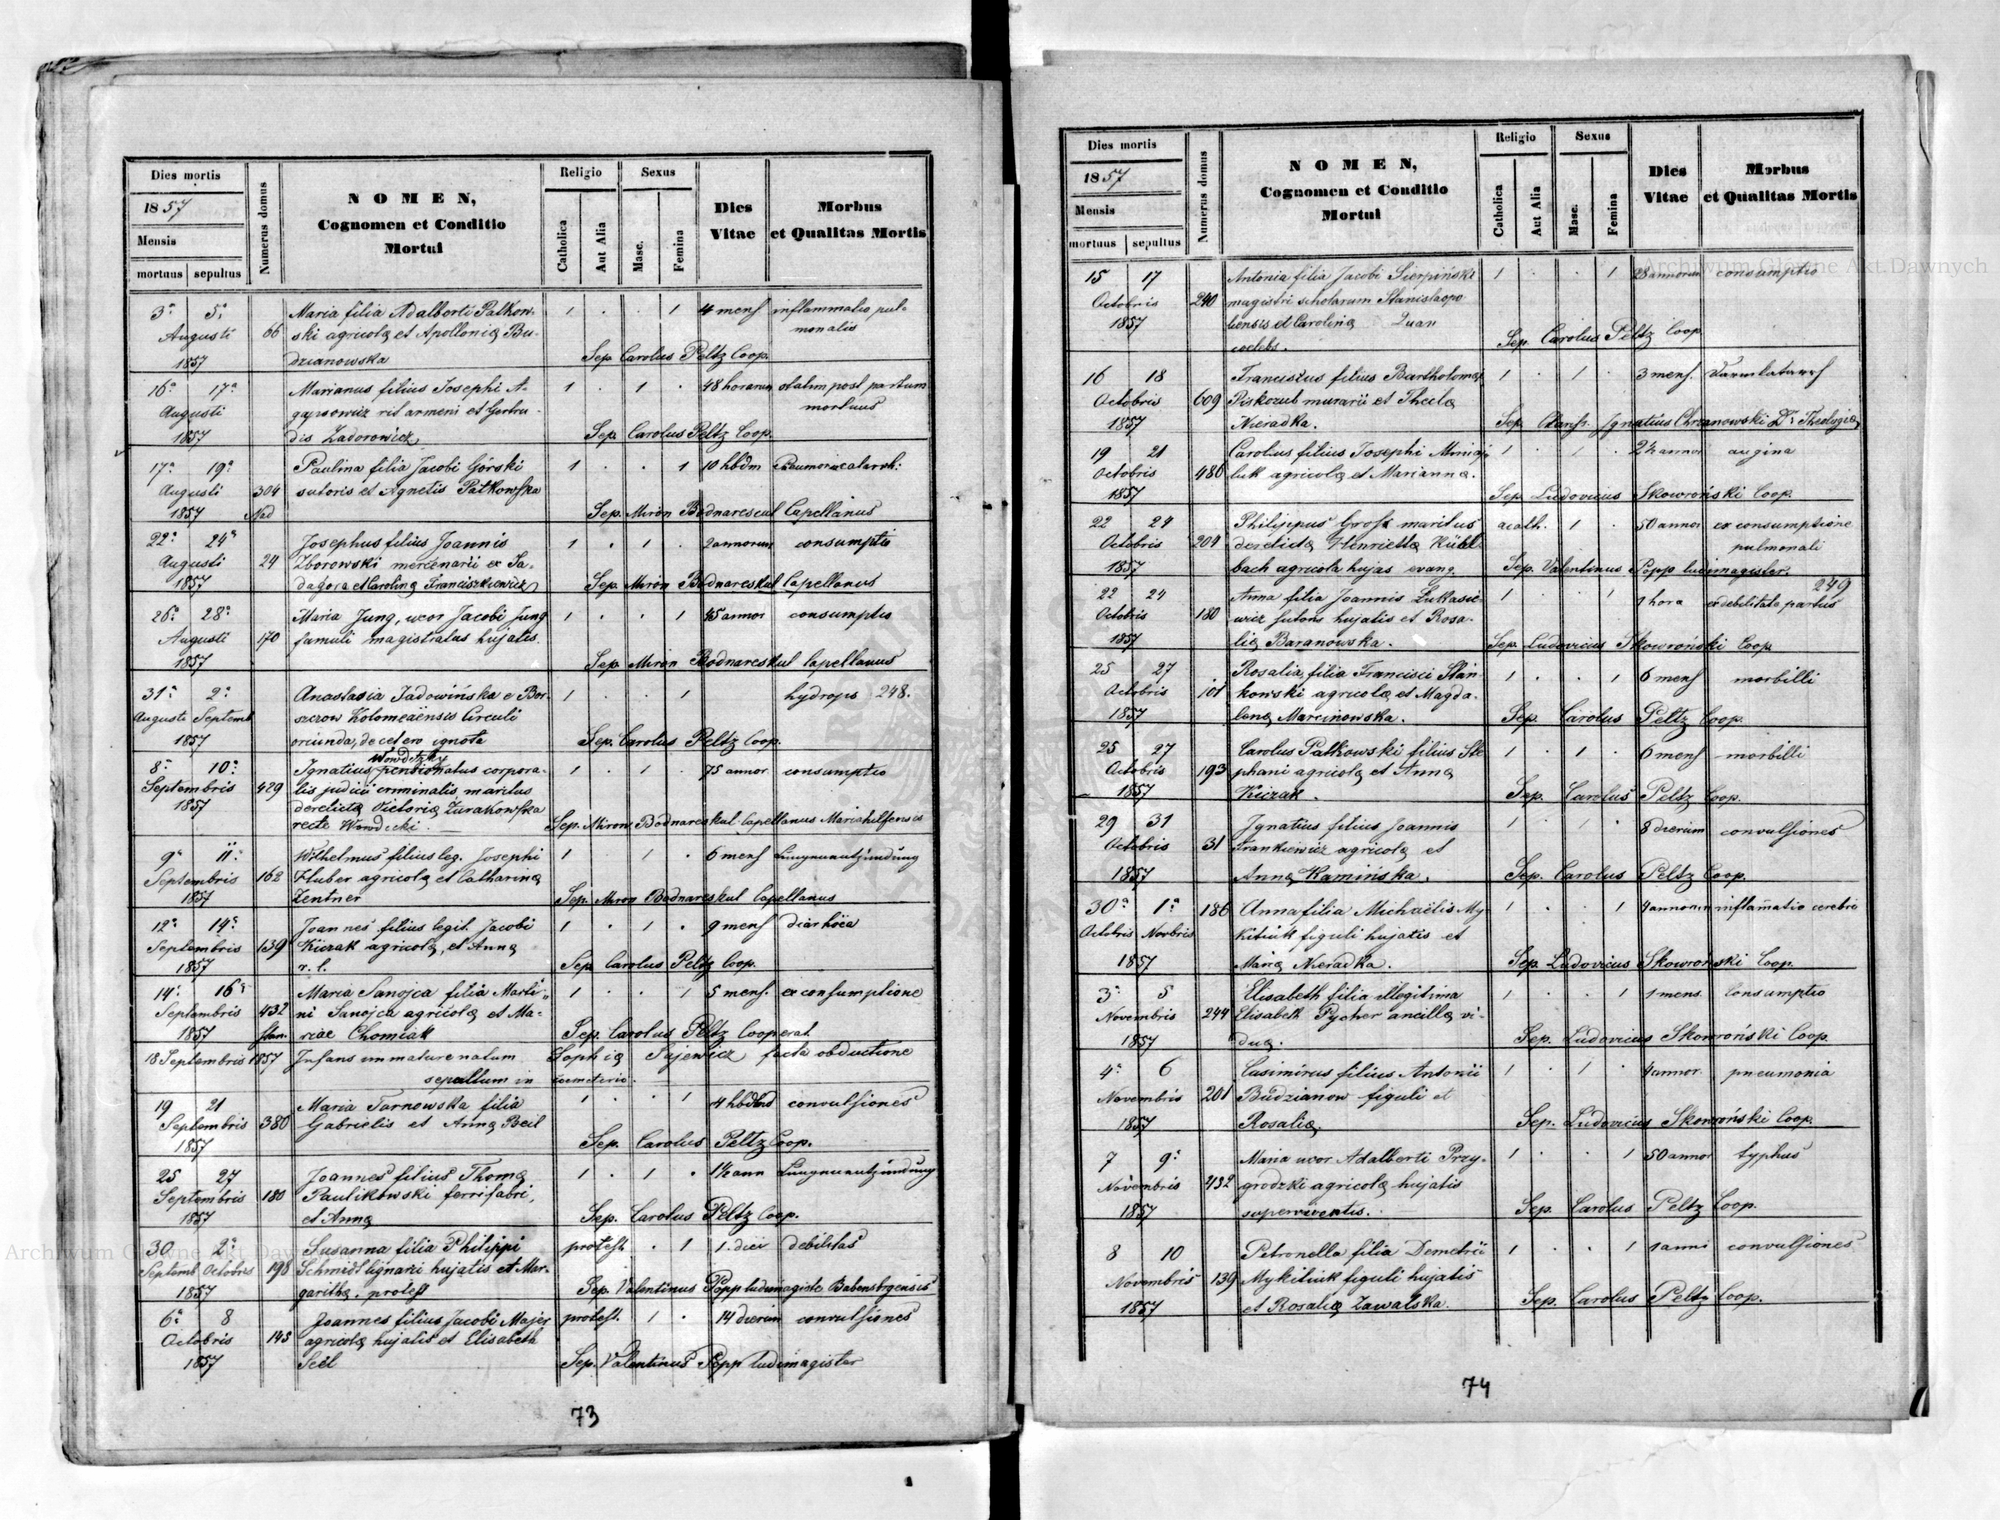 Dies mortis
1857
Mensis
mortuus sepultus
Numerus domus
NOMEN,
Cognomen et Conditio
Mortui
Religio
Catholica
Aut Alia
Sexus
Masc.
Femina
Dies
Vitae
Morbus
et Qualitas Mortis
3a 5a Maria filia Adalberti Patkow- 1 . . 1 4 mens inflammatio pul-
Augusti 66 ski agricolæ et Apolloniæ Bu- monalis
1857 dzianowska Sep. Carolus Peltz Coop.
16a 17a Marianus filius Josephi A- 1 . 1 . 48 horarum statim post partum
Augusti gapsowicz rit armeni et Gertru- mortuus
1857 dis Zadorowicz Sep. Carolus Peltz Coop.
17a 19a Paulina filia Jacobi Górski 1 . . 1 10 hbdm
Augusti 304 sutoris et Agnetis Patkowska
1857 Sep. Miron Bodnarescul Capellanus
22a 24a Josephus filius Joannis 1 . 1 . 2 annorum consumptio
Augusti 24 Zborowski mercenarii ex Sa-
1857 dagora et Carolinæ Franciszkiewicz Sep. Miron Bodnareskul Capellanus
26a 28a Maria Jung, uxor Jacobi Jung 1 . . 1 45 annor consumptio
Augusti 170 famuli magistratus hujatis.
1857 Sep. Miron Bodnareskul Capellanus
31a 2a Anastasia Jadowińska e Bor- 1 . . 1 hydrops 248.
Augusti Septemb szczow Kolomeaënsis Circuli
1857 oriunda, de cetero ignota Sep. Carolus Peltz Coop.
8a 10a Ignatius pensionatus corpora- 1 . 1 . 75 annor. consumptio
Septembris 429 lis judicii criminalis maritus
1857 derelictæ Victoriæ Zurakowska
recte Sep. Miron Bodnareskul Capellanus Mariahilfensis
9a 11a Wilhelmus filius leg. Josephi 1 . 1 . 6 mens Lungenentzündung
Septembris 162 Huber agricolæ et Catharinæ
1857 Zentner Sep. Miron Bodnareskul Capellanus
12a 14a Joannes filius legit. Jacobi 1 . 1 . 9 mens diarhöea
Septembris 139 Kuzak agricolæ, et Anna
1857 r. l. Sep. Carolus Peltz Coop.
14a 16a Maria Sanojca filia Marti- 1 . . 1 5 mens. ex consumptione
Septembris 432 ni Sanojca agricolæ et Ma-
1857 riae Chomiak Sep. Carolus Peltz Cooperat
18 Septembris 1857 Infans immature natum Sophiæ Sajewicz facta obductione
sepultum in coemeterio.
19 21 Maria Tarnowska filia 1 . . 1 4 hbdmd convulsiones
Septembris 380 Gabrielis et Annæ Beil
1857 Sep. Carolus Peltz Coop.
25 27 Joannes filius Thomæ 1 . 1 . 1½ ann Lungenentzündung
Septembris 180 Paulikowski ferrifabri,
1857 et Annæ Sep. Carolus Peltz Coop.
30 2a Susanna filia Philippi protest . . 1 1. diei debilitas
Septemb Octobris 198 Schmidt lignarii hujatis et Mar-
1857 garithæ. protest Sep. Valentinus Popp ludimagiste Babensbrgensis
6a 8 Joannes filius Jacobi Majer protest. 1 . 14 dierum convulsiones
Octobris 145 agricolæ hujatis et Elisabeth
1857 Seel Sep. Valentinus Popp ludimagister
73
Dies mortis
1857
Mensis
mortuus sepultus
Numerus domus
NOMEN,
Cognomen et Conditio
Mortui
Religio
Catholica
Aut Alia
Sexus
Masc.
Femina
Dies
Vitae
Morbus
et Qualitas Mortis
15 17 Antonia filia Jacobi Sierpiński 1 . . 1 28 annorum consumptio
Octobris 240 magistri scholarum Stanislaopo
1857 liensis et Carolinæ Quan
coelebs. Sep. Carolus Peltz Coop
16 18 Franciscus filius Bartholomæi 1 . 1 . 3 mens. Darmkatarrh
Octobris 609 Piskozub murarii et Theclæ
1857 Nieradka. Sep. Ignatius Chrzanowski Dr Theologiæ
19 21 Carolus filius Josephi 1 . 1 . 2½ annor angina
Octobris 486 luk agricolæ et Mariannæ.
1857 Sep. Ludovicus Skowroński Coop.
22 24 Philippus Gross maritus acath. 1 . 50 annor ex consumptione
Octobris 204 derelictæ Henriettæ Kübl- pulmonali
1857 bach agricola hujas evang. Sep. Valentinus Popp ludimagister.
249
22 24 Anna filia Joannis Lukasie- 1 . . 1 1 hora ex debilitate partus
Octobris 180 wicz sutoris hujatis et Rosa-
1857 liæ Baranowska. Sep. Ludovicus Skowroński Coop
25 27 Rosalia filia Francisci Stan- 1 . . 1 6 mens morbilli
Octobris 101 kowski agricolæ et Magda-
1857 lenæ Marcinowska. Sep. Carolus Peltz Coop.
25 27 Carolus Patkowski filius Ste 1 . 1 . 6 mens morbilli
Octobris 193 phani agricolæ et Annæ
1857 Kuzak. Sep. Carolus Peltz Coop.
29 31 Ignatius filius Joannis 1 . 1 . 8 dierum convulsiones
Octobris 31 Frankiewicz agricolæ et
1857 Annæ Kamińska. Sep. Carolus Peltz Coop.
30a 1a 186 Anna filia Michaëlis My- 1 . . 1 4 annorum inflamatio cerebri
Octobris Novbris kitiuk figuli hujatis et
1857 Mariæ Nieradka. Sep. Ludovicus Skowronski Coop.
3a 5 Elisabeth filia illegitima 1 . . 1 1 mens. Consumptio
Novembris 244 Elisabeth Pycher ancillæ vi-
1857 duæ. Sep. Ludovicus Skowroński Coop.
4a 6 Casimirus filius Antonii 1 . 1 . 4 annor. pneumonia
Novembris 201 Budzianow figuli et
1857 Rosaliæ. Sep. Ludovicus Skowroński Coop.
7 9a Maria uxor Adalberti Przy- 1 . . 1 50 annor typhus
Novembris 432 grodzki agricolæ hujatis
1857 superviventis. Sep. Carolus Peltz Coop.
8 10 Petronella filia Demetrii 1 . . 1 1 anni convulsiones
Novembris 139 Mykitiuk figuli hujatis
1857 et Rosaliæ Zawalska. Sep. Carolus Peltz Coop.
74
Archiwum Główne Akt Dawnych
Archiwum Główne Akt Dawnych